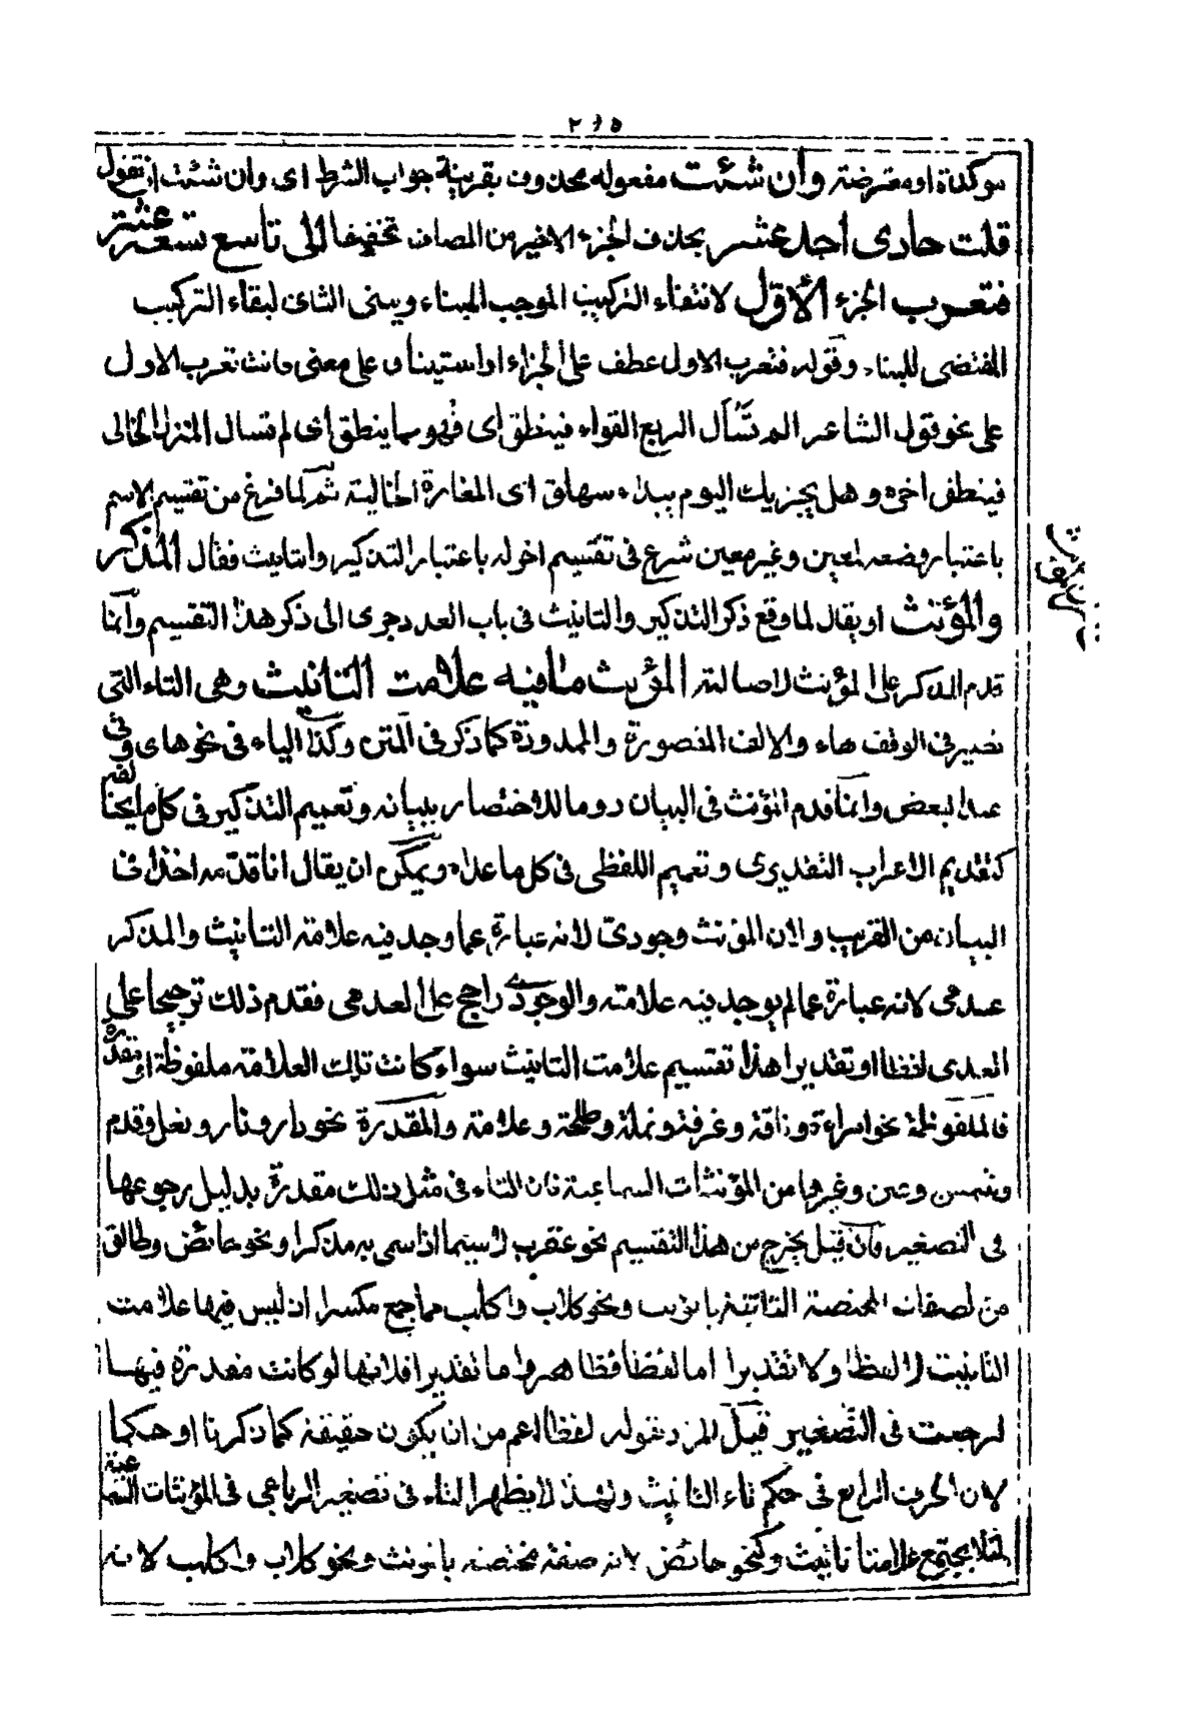 ٢٦٥
موكدة او معترضة وان شئت مفعوله محذوف بقرينة جواب الشرط اى وان شئت ان تقول
قلت حادى أحد عشر بحذف الجزء الاخير من المضاف تخفيفا الى تاسع تسعة عشر
فتعرب الجزء الأول لانتفاء التركيب الموجب للبناء ويبنى الثانى لبقاء التركيب
المقتضى للبناء وقوله فتعرب الاول عطف على الجزاء او استيناف على معنى فانت تعرب الاول
على نحو قول الشاعر الم تسأل الربع القواء فينطق اى فهو مما ينطق اى لم تسال المنزل الخالى
فينطق اخره وهل يخبرنك اليوم بيداء سملق اى المفازة الخالية ثم لما فرغ من تقسيم الاسم
باعتبار وضعه لمعين وغير معين شرع فى تقسيم اخر له باعتبار التذكير والتانيث فقال المذكر
والمؤنث او يقال لما وقع ذكر التذكير والتانيث فى باب العدد جرى الى ذكر هذا التقسيم وانما
قدم المذكر على المؤنث لاصالته المؤنث ما فيه علامت التانيث وهى التاء التى
تصير فى الوقف هاء والالف المقصورة والممدودة كما ذكر فى المتن وكذا الياء فى نحو هاذى وتى
عند البعض وانما قدم المؤنث فى البيان روما للاختصار ببيانه وتعميم التذكير فى كل ما يخالفه
كتقديم الاعراب التقديرى وتعميم اللفظى فى كل ما عداه ويمكن ان يقال انما قدمه اخذا فى
البيان من القريب ولان المؤنث وجودى لانه عبارة عما وجد فيه علامة التانيث والمذكر
عدمى لانه عبارة عما لم يوجد فيه علامته والوجودى راجح على العدمى فقدم ذلك ترجيحا على
العدمى لفظا او تقديرا هذا تقسيم علامت التانيث سواء كانت تلك العلامة ملفوظة او مقدرة
فالملفوظة نحو امراءة وناقة وغرفة ونملة وطلحة وعلامة والمقدرة نحو دار ونار ونعل وقدم
وشمس وعين وغيرها من المؤنثات السماعية فان التاء فى مثل ذلك مقدرة بدليل رجوعها
فى التصغير فان قيل يخرج من هذا التقسيم نحو عقرب لاسيما اذا سمى به مذكرا ونحو حائض وطالق
من الصفات المختصة الثابتة بالمؤنث ونحو كلاب واكلب مما جمع مكسرا اذ ليس فيها علامت
التانيث لا لفظا ولا تقديرا اما لفظا فظاهر واما تقديرا فلانها لو كانت مقدرة فيها
لرجعت فى التصغير قيل المراد بقوله لفظا اعم من ان يكون حقيقة كما ذكرنا او حكما
لان الحرف الرابع فى حكم تاء التانيث ولهذا لا يظهر التاء فى تصغير الرباعى فى المؤنثات السماعية
لئلا يجتمع علامتا تانيث وكنحو حائض لانه صفة مختصة بالمؤنث ونحو كلاب واكلب لانه